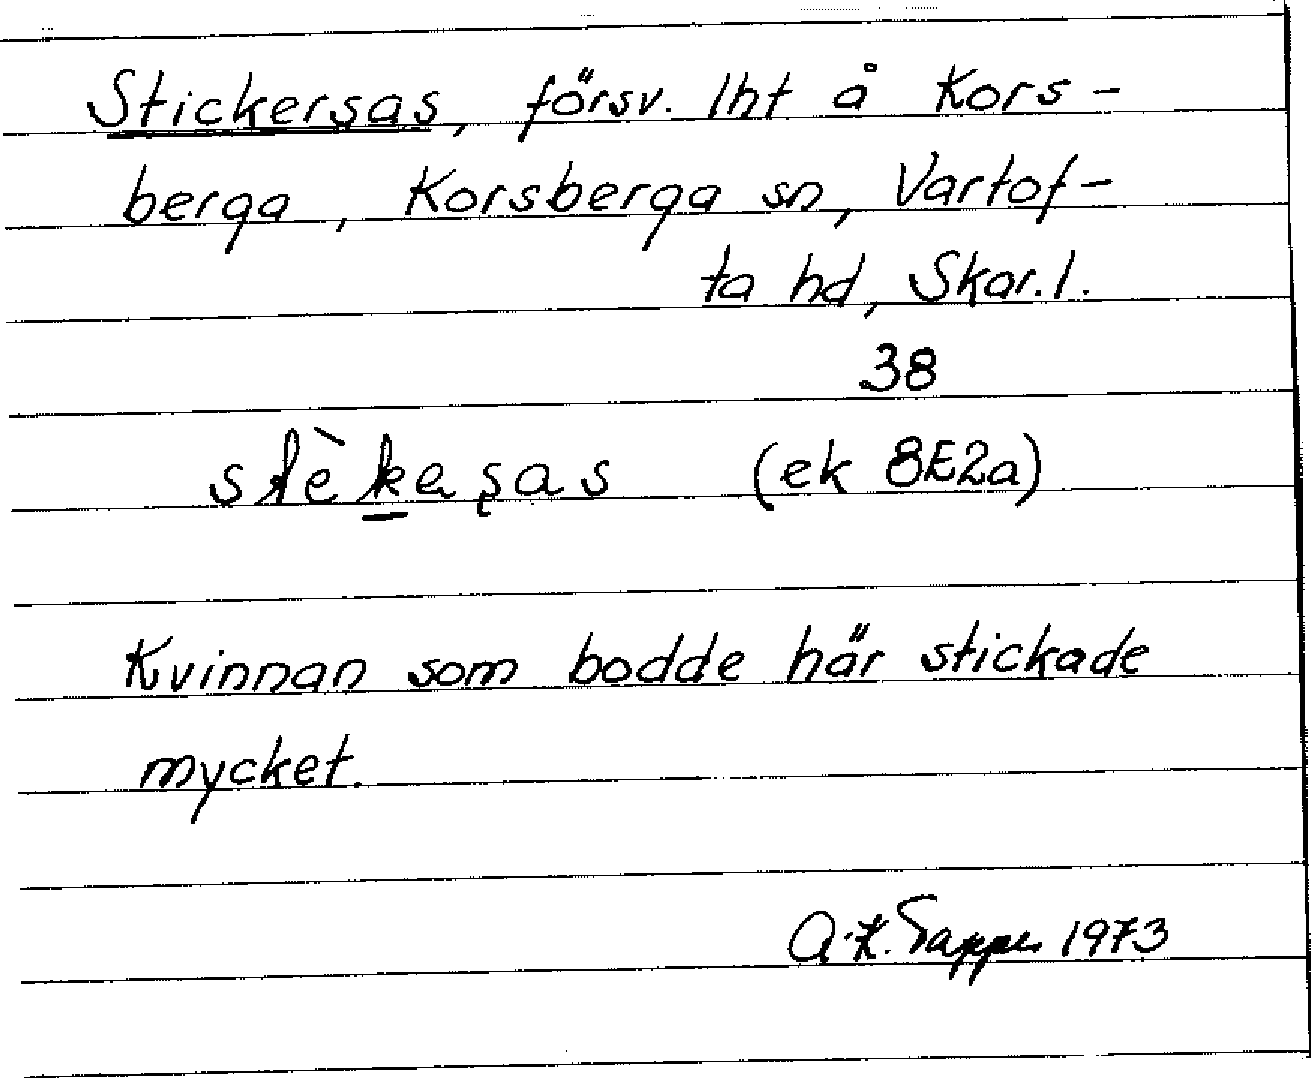 Stickersas, försv. lht å Kors-
berga, Korsberga sn, Vartof-
ta hd, Skar.l.
38
stèkesas (ek 8E2a)
Kvinnan som bodde här stickade
mycket.
A-K. 1973